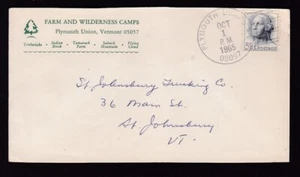 FARM AND WILDERNESS CAMPS
Plymouth Union, Vermont 05057
Timberlake Indian Brook Tamarack Farm Saltash Mountain Flying Cloud
PLYMOUTH
OCT
1
P.M
1965
05057
St Johnsbury Trucking Co.
36 Main St.
St Johnsbury
VT.